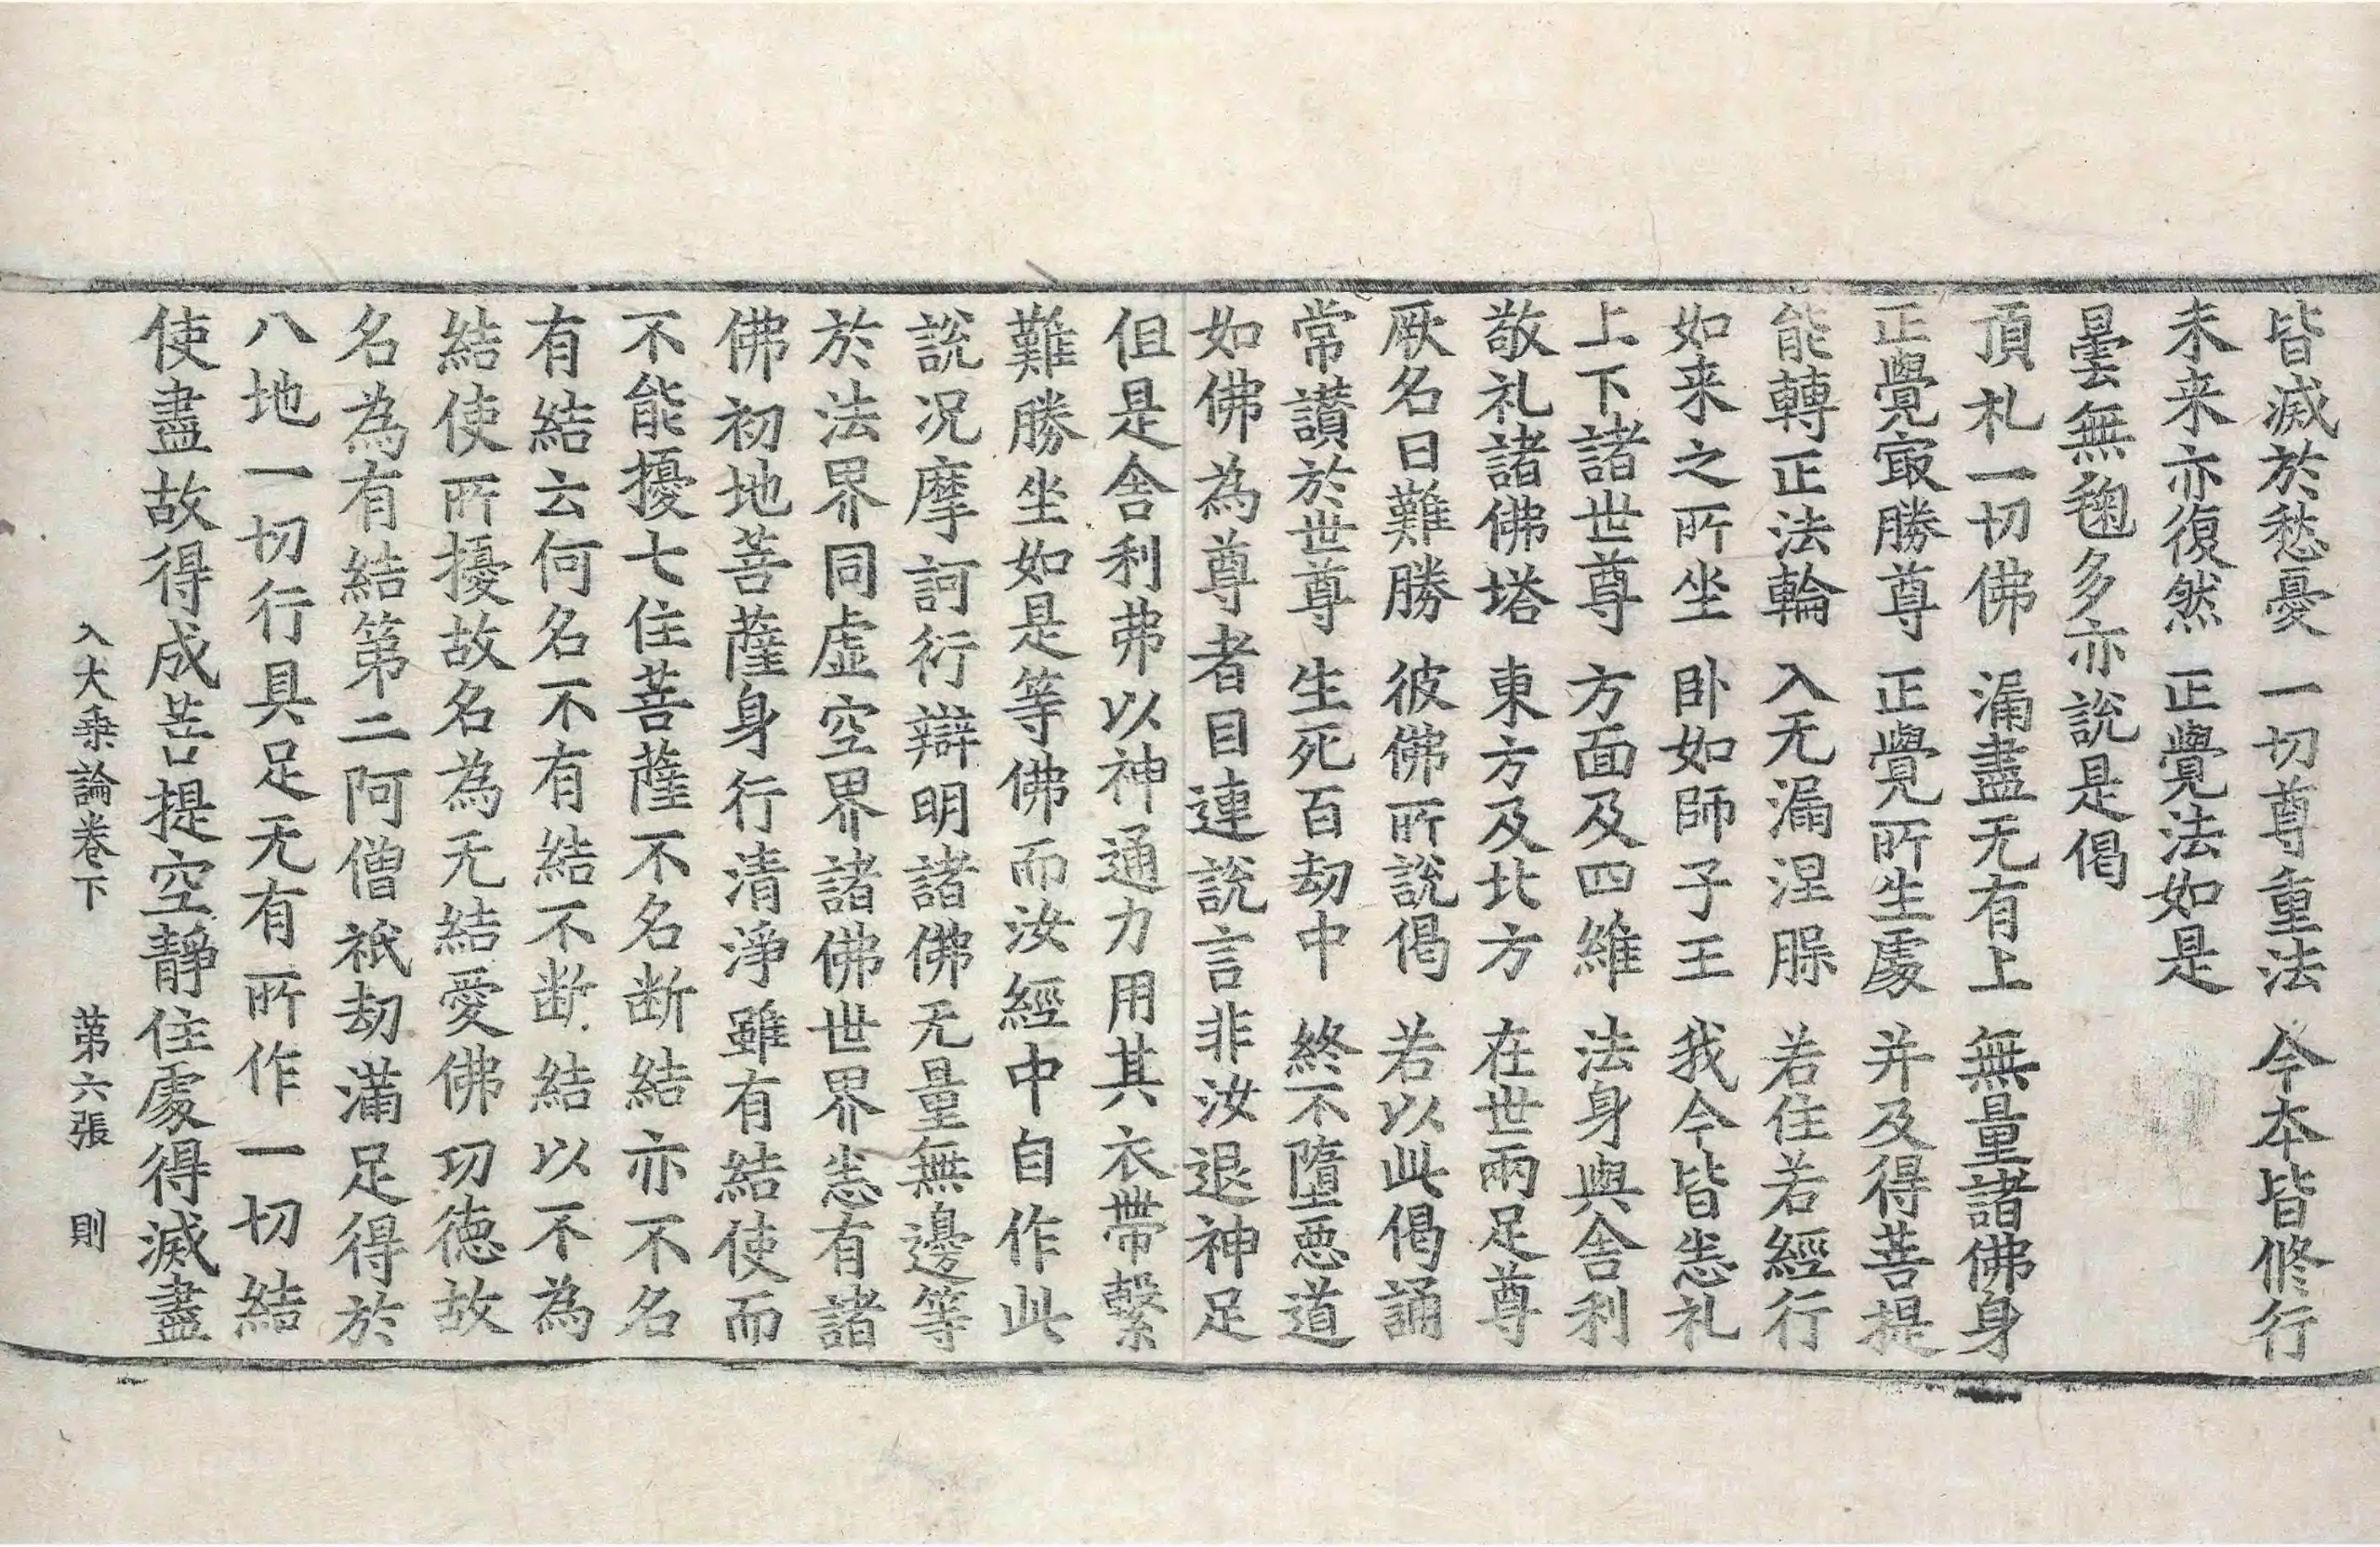 皆滅於愁憂　一切尊重法　今夲皆修行
未来亦復然　正覺法如是
曇無毱多亦說是偈
頂礼一切佛　漏盡无有上　無量諸佛身
正覺㝡勝尊　正覺所生處　并及得菩提
能轉正法輪　入无漏涅槃　若住若經行
如来之所坐　卧如師子王　我今皆悉礼
上下諸世尊　方面及四維　法身與舍利
敬礼諸佛塔　東方及北方　在世兩足尊
厥名曰難勝　彼佛所說偈　若以此偈誦
常讃於世尊　生死百劫中　終不墮惡道
如佛為尊者目連說言非汝退神足
但是舍利弗以神通力用其衣帶繫
難勝坐如是等佛而汝經中自作此
說况摩訶衍辯明諸佛无量無邊等
於法界同虛空界諸佛世界悉有諸
佛初地菩薩身行清淨雖有結使而
不能擾七住菩薩不名断結亦不名
有結云何名不有結不断結以不為
結使所擾故名為无結愛佛功德故
名為有結第二阿僧祇劫滿足得於
八地一切行具足无有所作一切結
使盡故得成菩提空靜住處得滅盡
入大乗論卷下　第六張　則